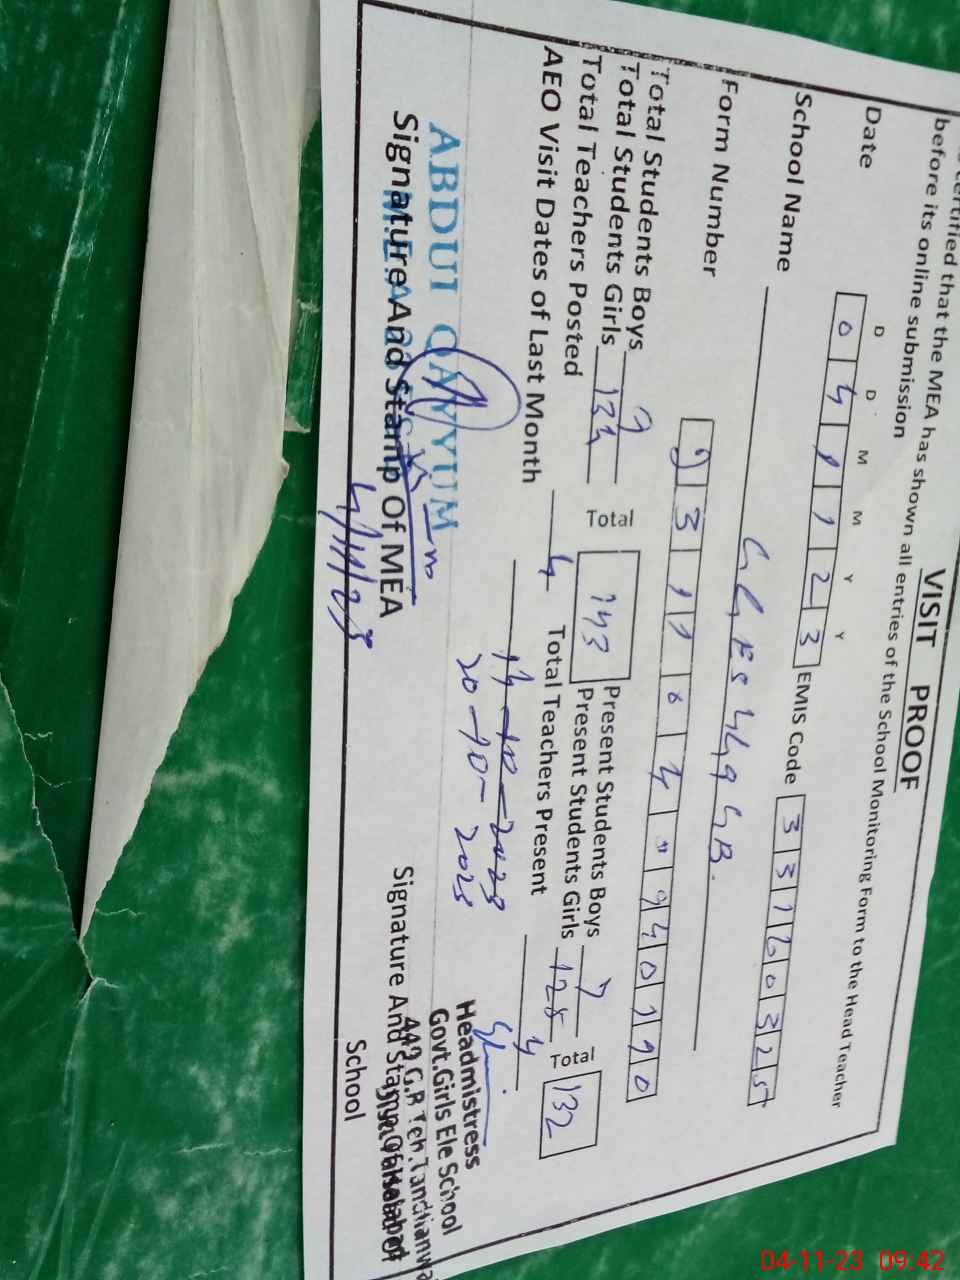 VISIT PROOF
certified that the MEA has shown all entries of the School Monitoring Form to the Head Teacher
before its online submission
D D M M Y Y
Date 041123 EMIS Code 33160325
School Name GGES 449 GB.
Form Number
Total Students Boys 9 Total 143 Present Students Boys 7 Total 132
Total Students Girls 134 Present Students Girls 125
Total Teachers Posted 4 Total Teachers Present 4
AEO Visit Dates of Last Month
20-10-2023
ABDUL QAYYUM
Signature And Stamp Of MEA
4/11/23
Headmistress
Govt.Girls Ele School
449 G.B Teh.Tandlianwa
Signature And Stamp Of Head Of
School
04-11-23 09:42